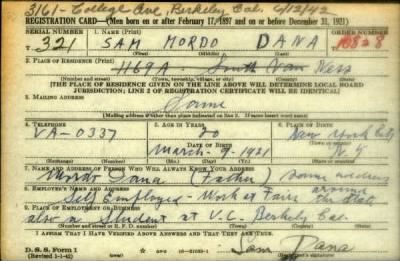 3161 - College Ave, Berkeley Cal. 6/12/42
REGISTRATION CARD—(Men born on or after February 17, 1897 and on or before December 31, 1921)
SERIAL NUMBER
1. NAME (Print)
ORDER NUMBER
321
SAM MORDO DANA
10828
(First) (Middle) (Last)
2. PLACE OF RESIDENCE (Print)
1169A - South Van Ness
(Number and street) (Town, township, village, or city) (County) (State)
[THE PLACE OF RESIDENCE GIVEN ON THE LINE ABOVE WILL DETERMINE LOCAL BOARD
JURISDICTION; LINE 2 OF REGISTRATION CERTIFICATE WILL BE IDENTICAL]
3. MAILING ADDRESS
Same
(Mailing address if other than place indicated on line 2. If same insert word same)
4. TELEPHONE
5. AGE IN YEARS
6. PLACE OF BIRTH
VA-0337
20
New York City
DATE OF BIRTH
March - 9 - 1921
N.Y.
(Exchange) (Number) (Mo.) (Day) (Yr.) (State or country)
7. NAME AND ADDRESS OF PERSON WHO WILL ALWAYS KNOW YOUR ADDRESS
Mordo Dana (Father) Same address
8. EMPLOYER'S NAME AND ADDRESS
Self Employed - Work at Fairs around the State
9. PLACE OF EMPLOYMENT OR BUSINESS
also a Student at U.C. Berkeley Cal.
(Number and street or R. F. D. number) (Town) (County) (State)
I AFFIRM THAT I HAVE VERIFIED ABOVE ANSWERS AND THAT THEY ARE TRUE.
D. S. S. Form 1
(Revised 1-1-42)
Sam Dana